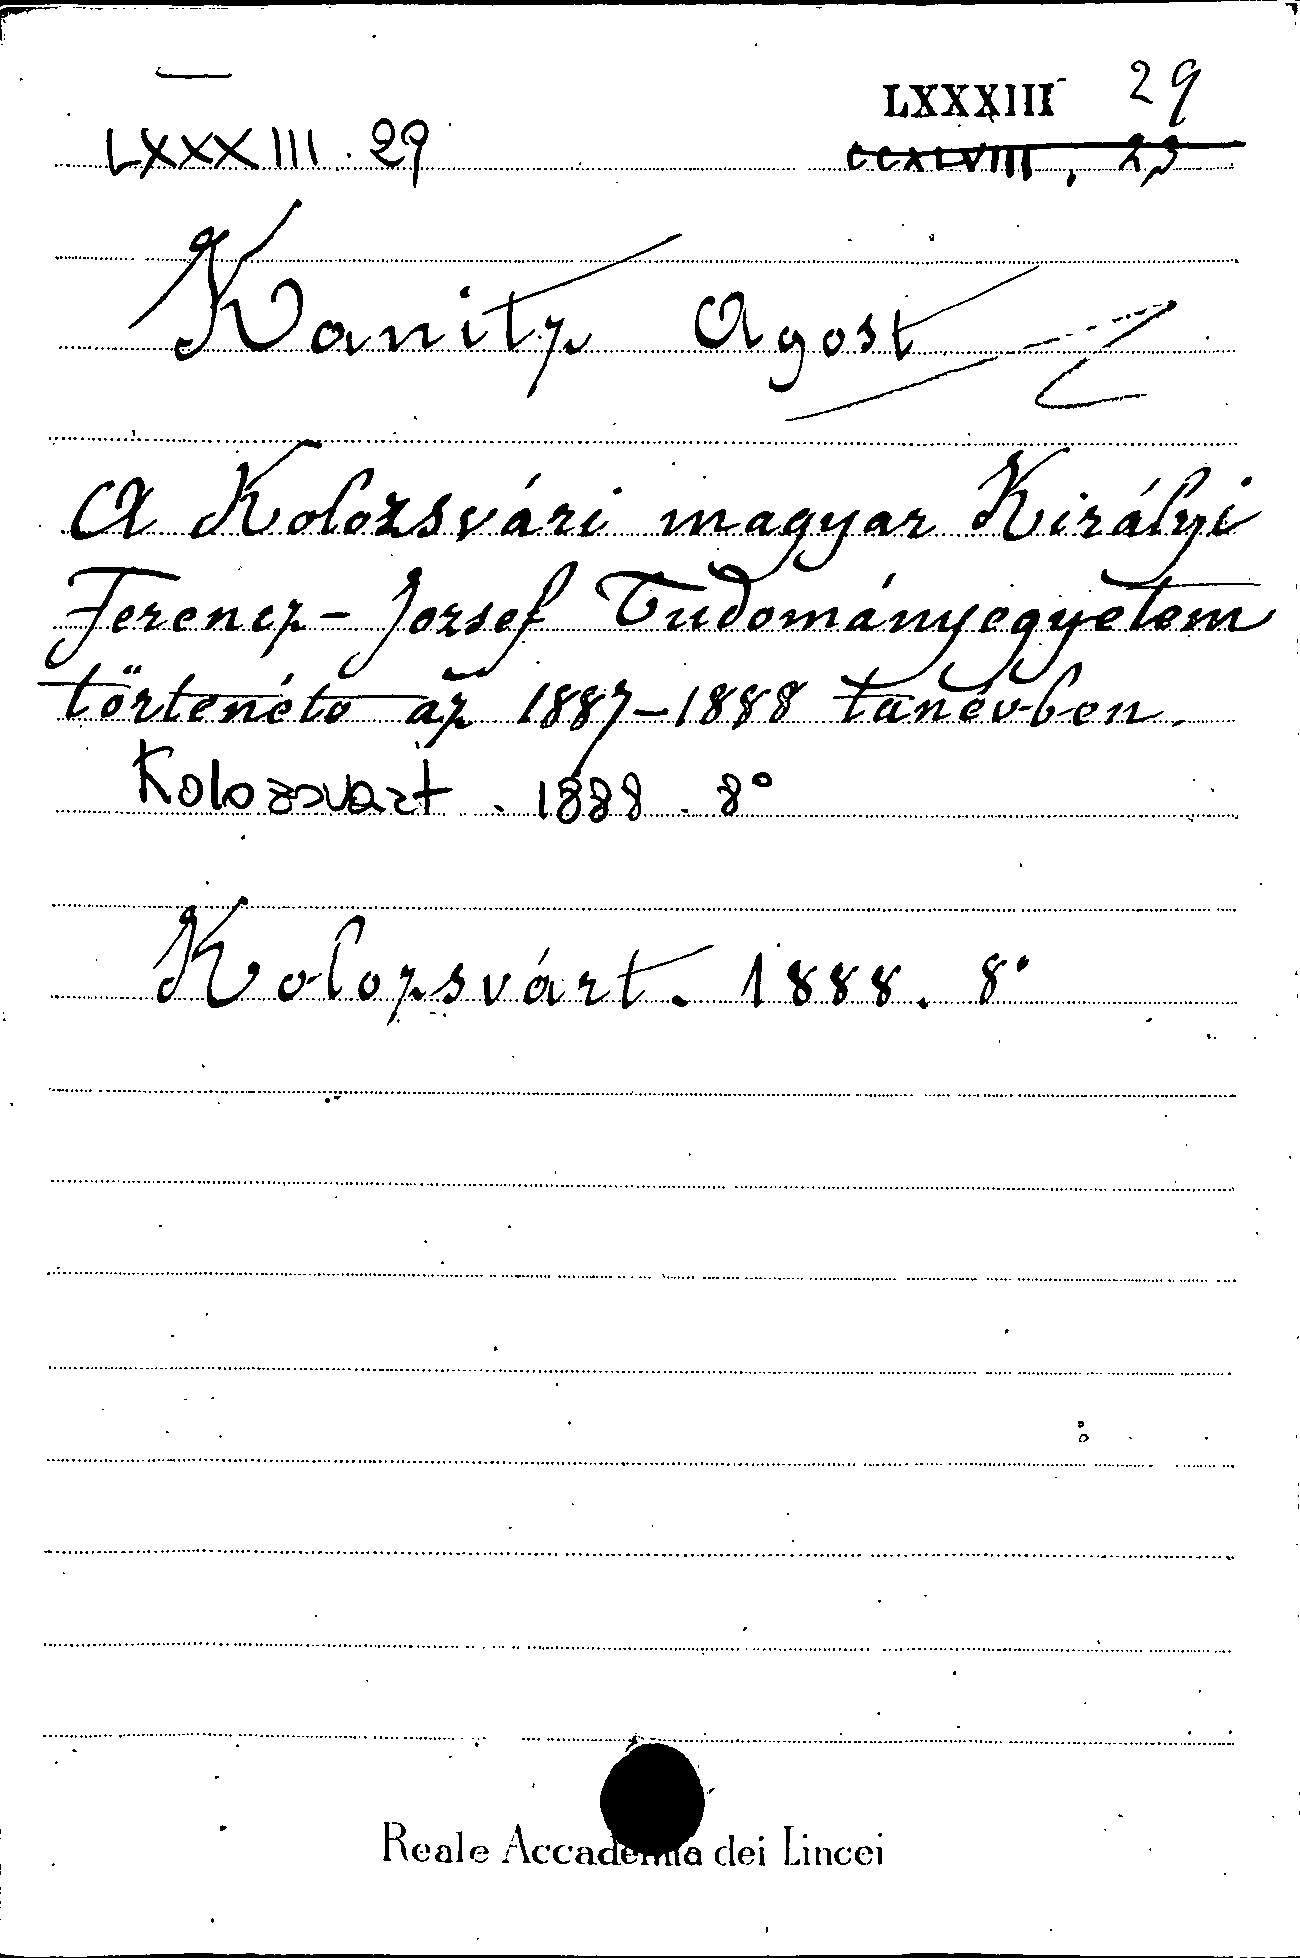 LXXXIII 29
LXXXIII . 29
CCXLVIII , 23
Kanitz Agost
A Kolozsvári magyar Királyi
Ferencz - Jozsef Tudományegyetem
törtenéto az 1887-1888 tanévben.
Kolozsvart . 1888 . 8°
Kolozsvárt . 1888 . 8°
Reale Accademia dei Lincei